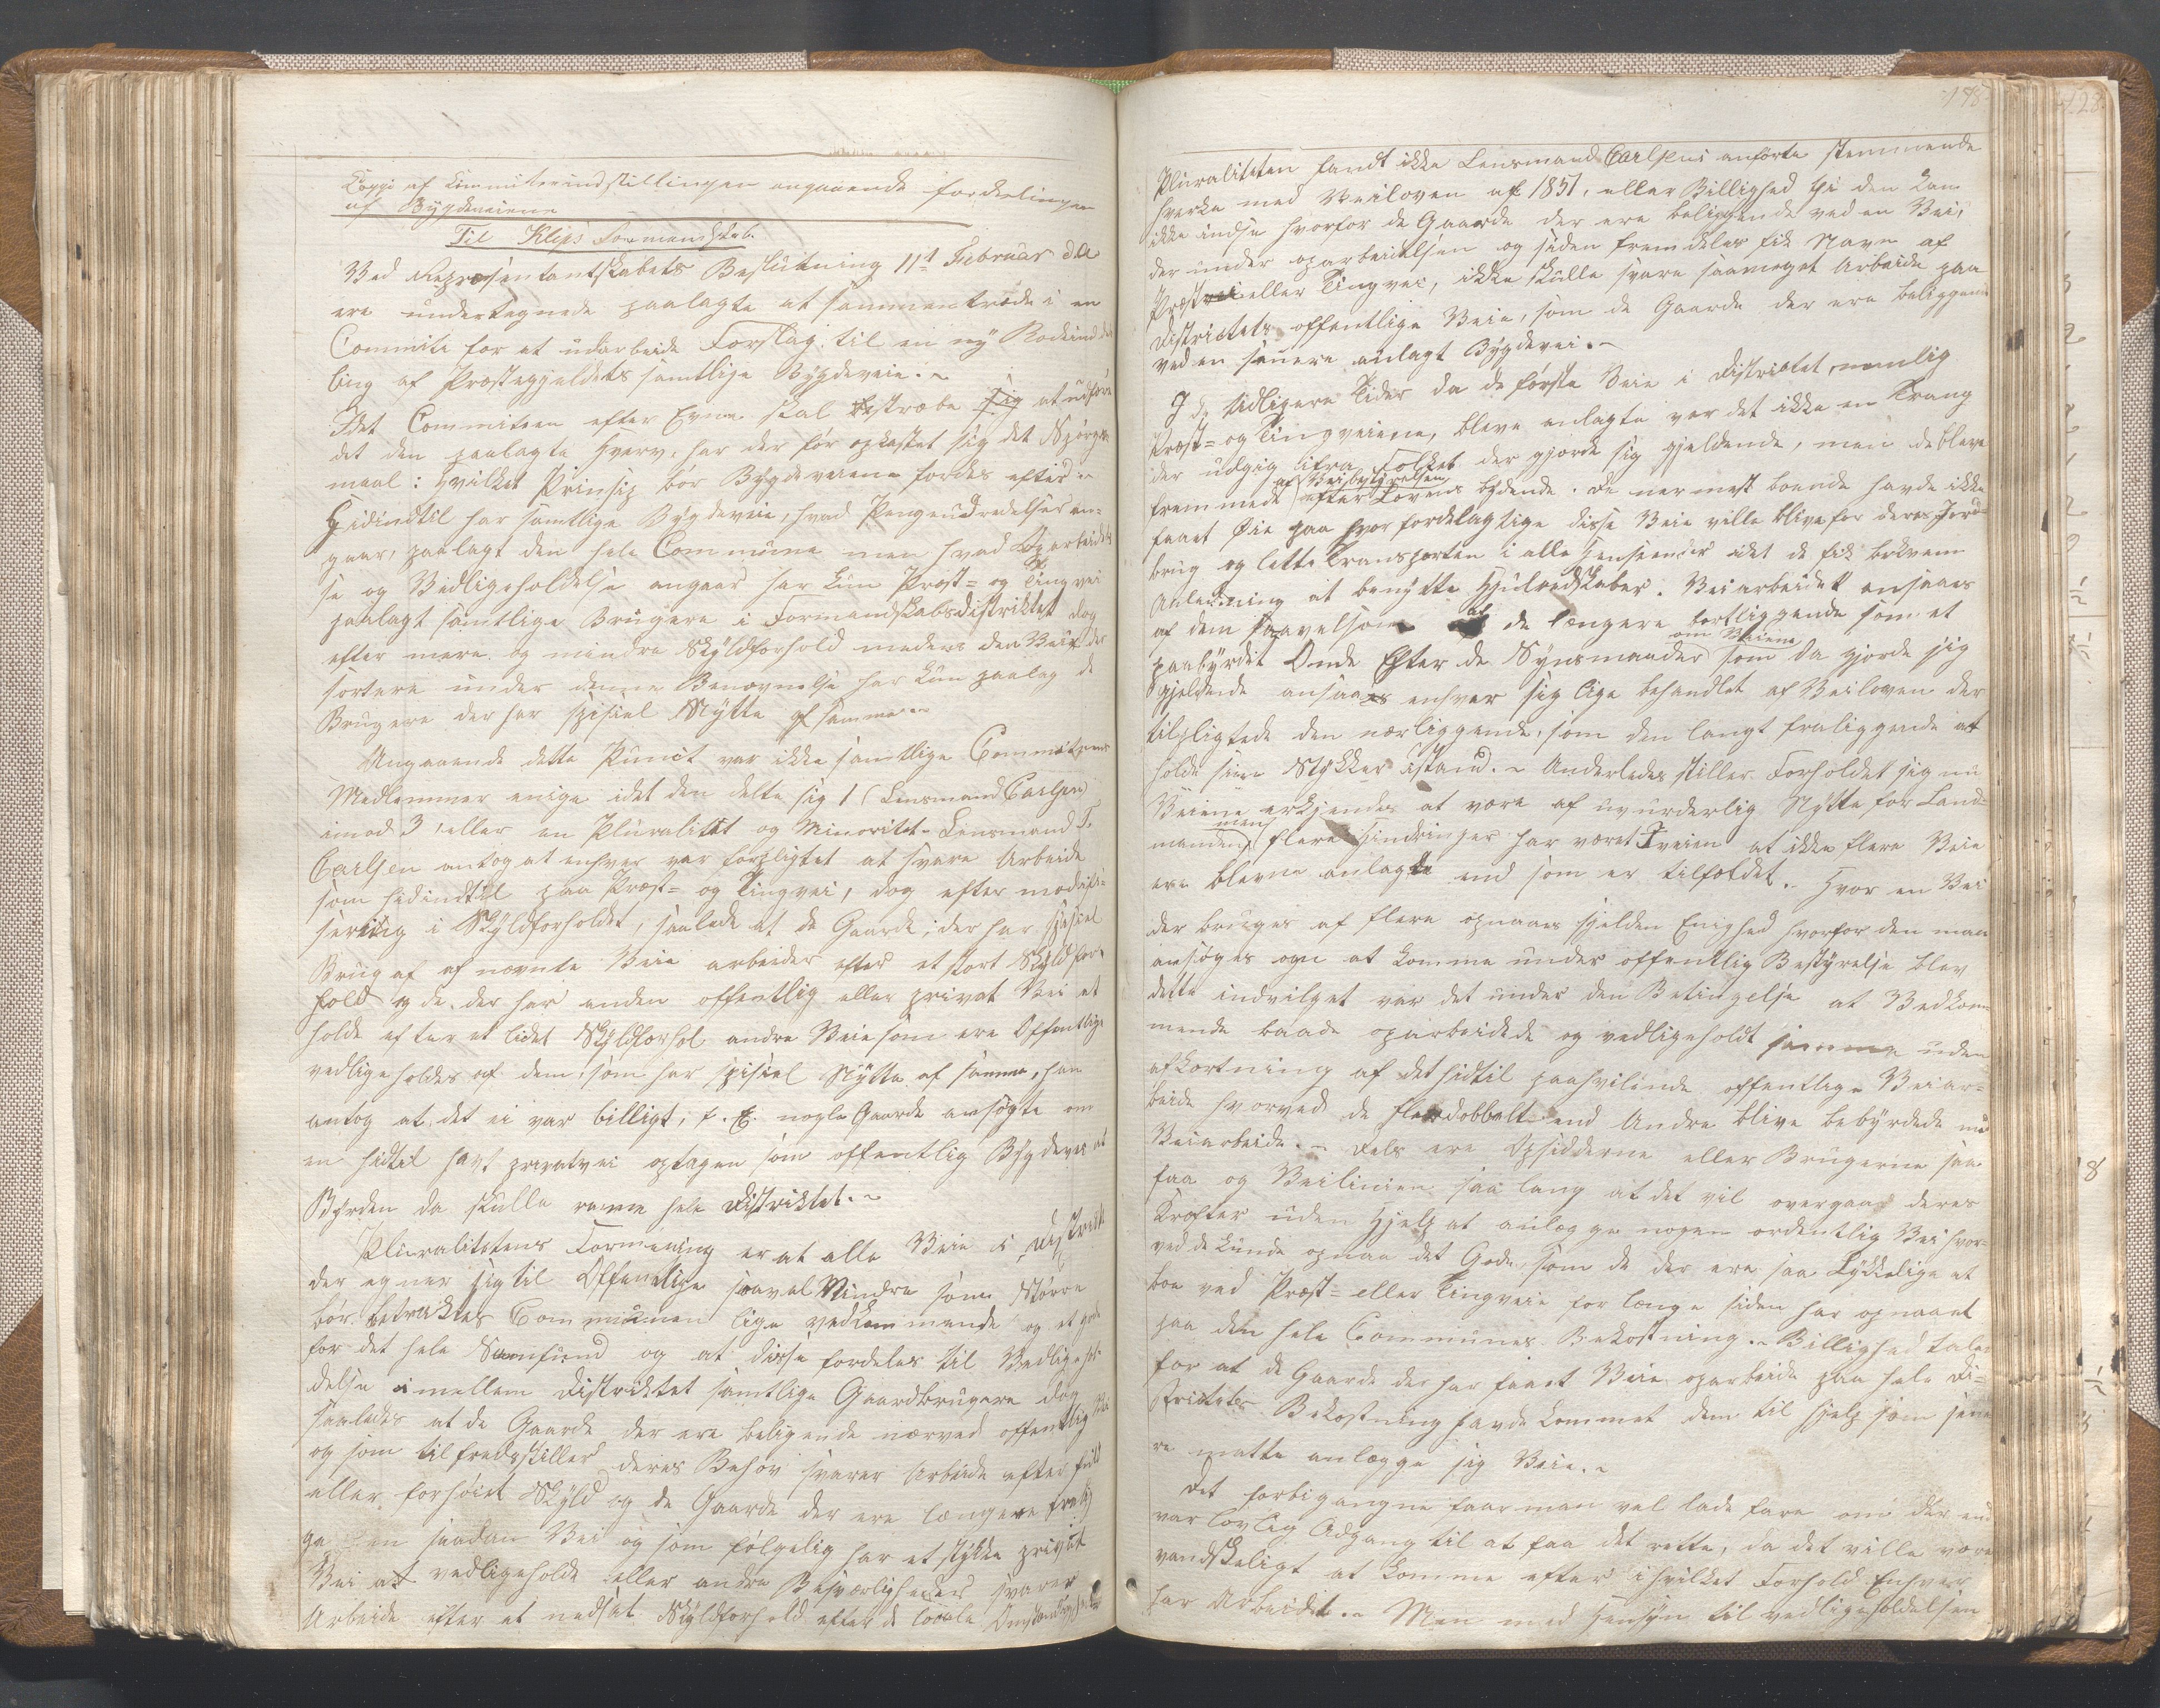 Coppi af Commiteeindstillingen angaaende fordelingen
af Bygdeveiene
Til Klips Formandskab.
Ved Repræsentantskabets Beslutning 11te Februar d A
ere undertegnede paalagte at sammentræde i en
Commite for at udarbeide Forslag til en ny Rodeinde
ling af Præstegjeldets samtlige Bygdeveie.~
Idet Commiteen efter Evne skal bestræbe sig at udføre
det den paalagte Hverv, har der før opkastet sig det Spørgs
maal: Hvilket Prinsip bør Bygdeveiene fordes efter ~
Hidindtil har samtlige Bygdeveie, hvad Pengeudredelser an-
gaar, paalagt den hele Commune men hvad Oparbeidel
se og Vedligeholdelse angaar har kun Præst= og Tingvei
paalagt samtlige Brugere i Formandskabsdistriktet dog
efter mere og mindre Skyldforhold medens den Vei der
sortere under denne Benævnelse har kun paalag de
Brugere der har spesiel Nytte af samme~
Angaaende dette Punct var ikke samtlige Commiteens
Medlemmer enige idet den delte sig 1 (Lensmand Carlsen)
imod 3, eller en Pluralitet og Minoritet- Lensmand T.
Carlsen antog at enhver var forpligtet at svare Arbeide
som hidindtil paa Præst= og Tingvei, dog efter modifi-
sering i Skyldforholdet, saalede at de Gaarde, der har spesiel
Brug af af nævnte Veie arbeider efter et stort Skyldfor-
hold og de der har anden offentlig eller privat Vei at
holde efter et lidet Skyldforhol andre Veie som ere Offentlige
vedligeholdes af dem, som har spesiel Nytte af samme, han
antog at det ei var billigt, f. Ex. nogle Gaarde ansøgte om
en hidtil havt privatvei optagen som offentlig Bygdevei at
Byrden da skulle ramme hele Distriktet.~
Pluralitetens Formening er at alle Veie i Distriktet
der egner sig til Offentlige saavel Mindre som Større
bør betraktes Communen lige vedkommende og et gode
for det hele Samfund og at disse fordeles til Vedligehol-
delse imellem Distriktet samtlige Gaardbrugere dog
saaledes at de Gaarde der ere beligende nærved offentlig Vei
og som tilfredsstiller deres Behov svarer Arbeide efter fuld
eller forhøiet Skyld og de Gaarde der ere længere fralig
ge en saadan Vei og som følgelig har et stykke privat
Vei at vedligeholde eller andre Besværligheder svarer
Arbeide efter et nedsat Skyldforhold efter de locale Omstændigheder
Pluraliteten fandt ikke Lensmand Carlsens anførte stemmende
hverken med Veiloven af 1851, eller Billighed thi den kan
ikke indse hvorfor de Gaarde der ere beliggende ved en Vei,
der under oparbeidelsen og siden fremdeles fik Navn af
Præstvei eller Tingvei, ikke skulle svare saameget Arbeide paa
Districtets offentlige Veie, som de Gaarde der ere beliggende
ved en senere anlagt Bygdevei.~
I de tidligere Tider da de første Veie i Distriktet, nemlig
Præst= og Tingveiene, bleve anlagte var det ikke en Trang
der udgig ifra Folket der gjorde sig gjeldende, men de bleve
af Veibestyrelsen
fremmede efter Lovens bydende. De nærmest boende havde ikke
faaet Øie paa hvor fordelagtige disse Veie ville blive for deres Jord-
brug og lette Transporten i alle Henseender idet de fik bekvem
Anledning at benytte Hjulredskaber. Veiarbeidet ansaaes
af dem saavelsom af de længere bortliggende som et
om Veiene
paabyrdet Onde Efter de Synsmaader som da gjorde sig
gjeldende ansaaes enhver sig lige behandlet af Veiloven der
tilpligtede den nærliggende, som den langt fraliggende at
holde sine Stykker istand.~ Anderledes stiller Forholdet sig nu
Veiene erkjendes at være af uvurderlig Nytte for Land-
men
manden, flere Hindringer har været Iveien at ikke flere Veie
ere blevne anlagte end som er tilfældet.~ Hvor en Vei
der bruges af flere opnaaes sjelden Enighed hvorfor den man
ansøges om at komme under offentlig Bestyrelse blev
dette indvilget var det under den Betingelse at Vedkom-
mende baade oparbeidede og vedligeholdt samme uden
afkortning af det hidtil paahvilende offentlige Veiar-
beide hvorved de flerdobbelt end Andre blive bebyrdede med
Veiarbeide.~ Dels ere Opsidderne eller Brugerne saa
faa og Veilinien saa lang at det vil overgaa deres
Kræfter uden Hjelp at anlægge nogen ordentlig Vei hvor-
ved de kunde opnaa det Gode, som de der ere saa Lykkelige at
boe ved Præst= eller Tingveie for længe siden har opnaaet
paa den hele Communes Bekostning.~ Billighed taler
for at de Gaarde der har faaet Veie oparbeide paa hele Di-
strictets Bekostning havde kommet dem til hjelp som sene
re matte anlægge sig Veie.~
Det forbigangne faar man vel lade fare om der end
var lovlig Adgang til at faa det rette, da det ville være
vandskeligt at komme efter i hvilket Forhold Enhver
har Arbeidet.~ Men med Hensyn til vedligeholdelsen